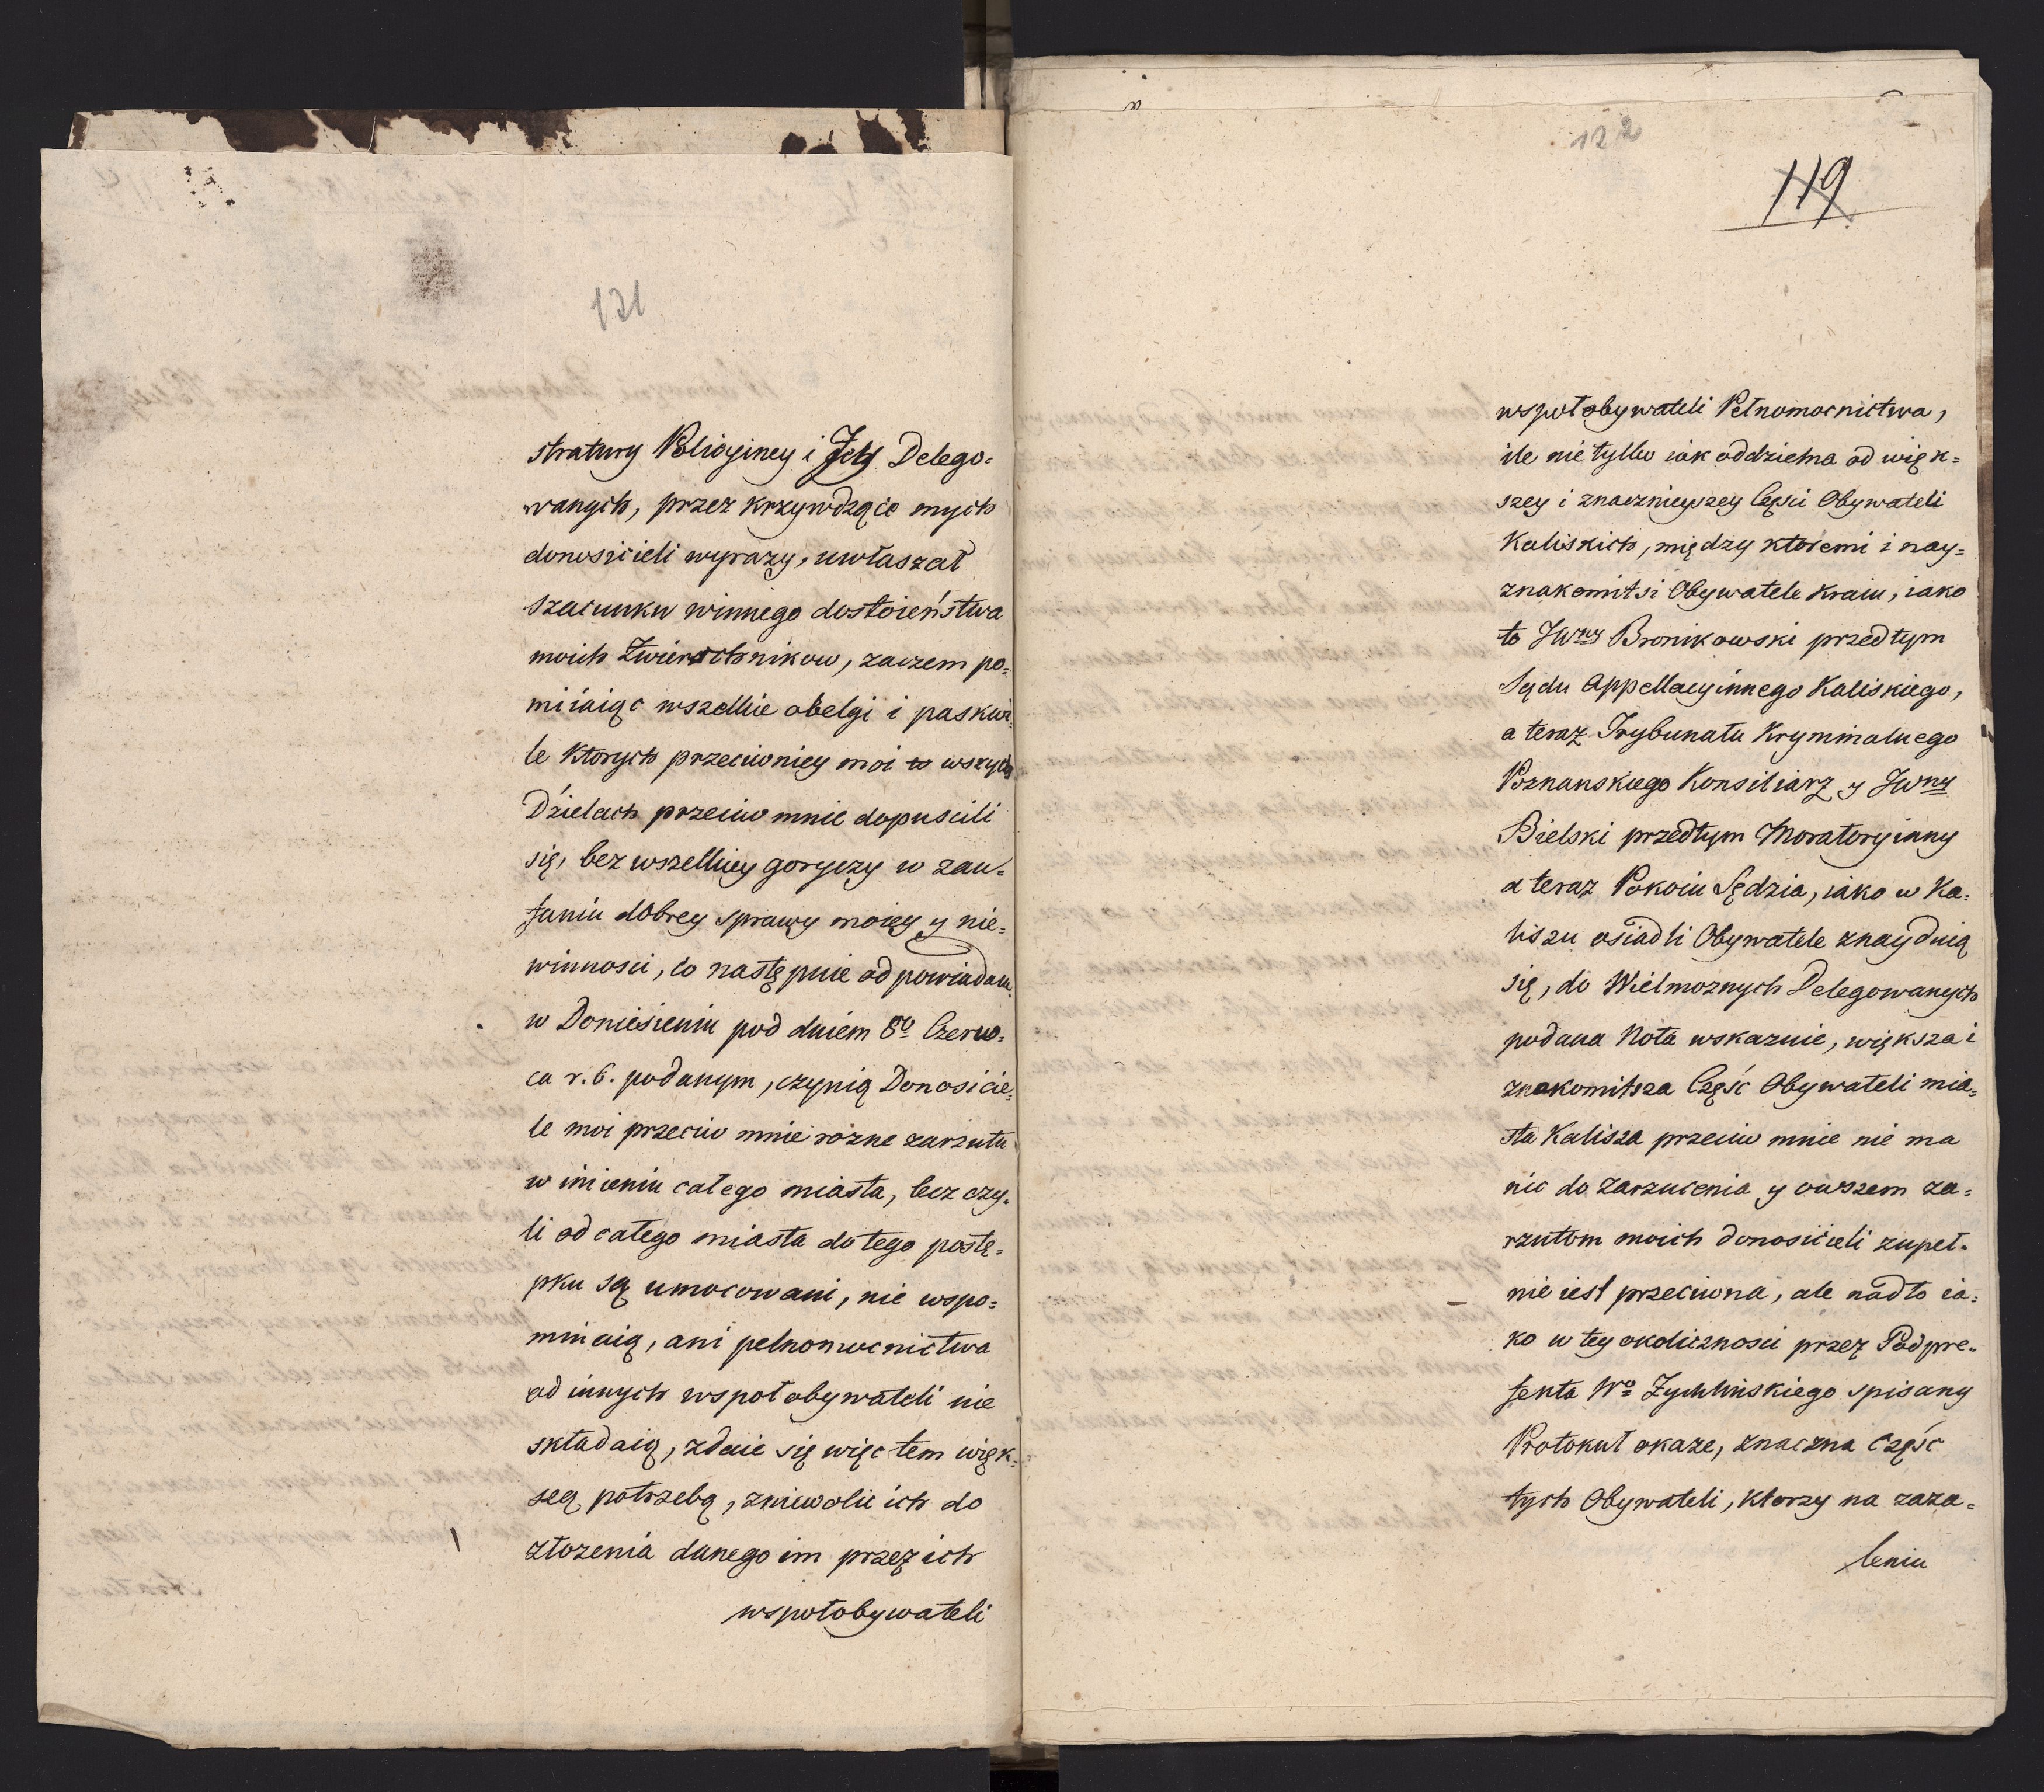 131
stratury Policyiney i Jey Delego=
wanych, przez krzywdzące mych
donosicieli wyrazy, uwłaszał
szacunku winnego dostoieństwa
moich Zwierzchnikow, zaczem po=
miiaiąc wszelkie obelgi i paskwi=
le ktorych przeciwnicy moi w swych
Dziełach przeciw mnie dopuscili
się, bez wszelkiey goryczy w zau=
faniu dobrey sprawy moiey y nie=
winnosci, co następnie odpowiadam.
w Doniesieniu pod dniem 8º Czerw=
ca r. b. podanym, czynią Donosicie=
le moi przeciw mnie rozne zarzuta
w imieniu całego miasta, lecz czy=
li od całego miasta do tego postę=
pku są umocowani, nie wspo=
minaią, ani pełnomocnictwa
od innych wspołobywateli nie
składaią, zdaie się więc tem więk=
szą potrzebą, zniewolic ich do
złozenia danego im przez ich
wspołobywateli
122
119
wspołobywateli Pełnomocnictwa,
ile nie tylko iak oddzielna od więk=
szey i znacznieyszey Części Obywateli
Kaliskich, między ktoremi i nay=
znakomitsi Obywatele Kraiu, iako
to JWny Bronikowski przedtym
Sądu Appellacyinnego Kaliskiego,
a teraz Trybunału Kryminalnego
Poznanskiego Konsiliarz y JWny
Bielski przedtym Moratoryinny
a teraz Pokoiu Sędzia, iako w Ka=
liszu osiadli Obywatele znayduią
się, do Wielmoznych Delegowanych
podana Nota wskazuie, większa i
znakomitsza Część Obywateli mia=
sta Kalisza przeciw mnie nie ma
nic do zarzucenia y owszem za=
rzutom moich donosicieli zupeł=
nie iest przeciwna, ale nadto ia=
ko w tey okolicznosci przez Podpre=
fekta Wº Zychlinskiego spisany
Protokuł okaze, znaczna Część
tych Obywateli, ktorzy na zaza=
leniu